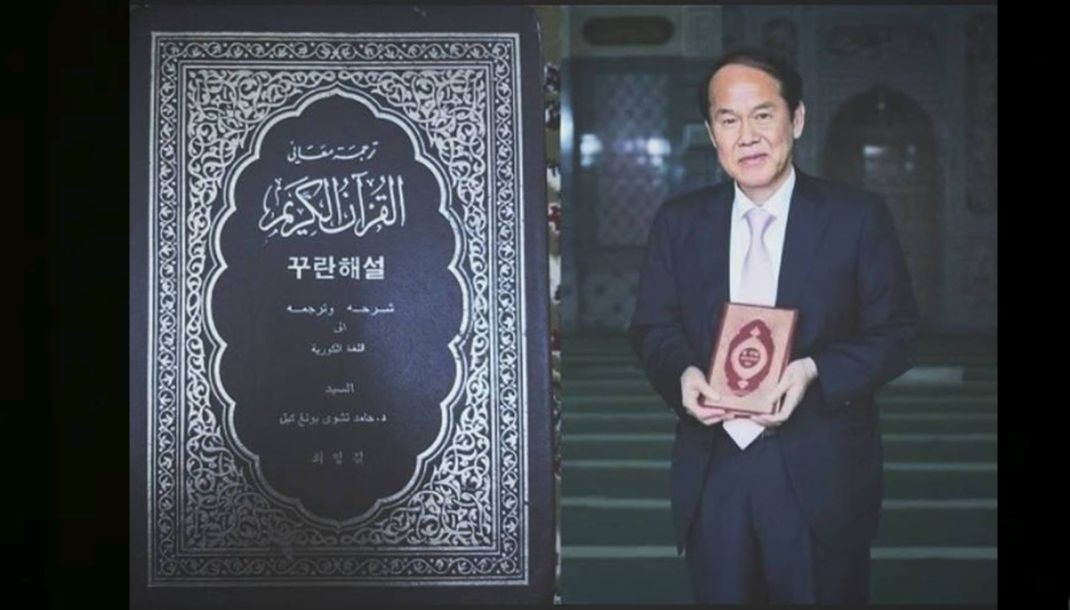 ترجمة معاني
القرآن الكريم
꾸란해설
شرحه وترجمه
الى
اللغة الكورية
السيد
د. حامد تشوى يونغ كيل
최 영 길